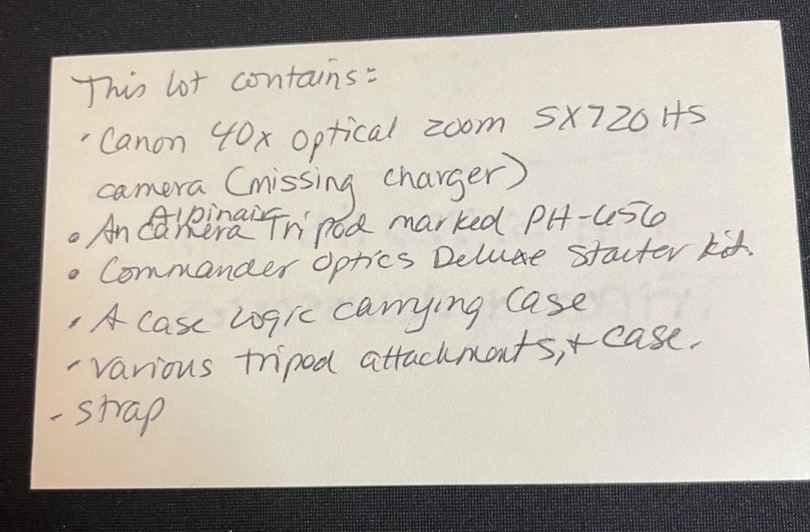 This lot contains:
• Canon 40x optical zoom SX720 HS
camera (missing charger)
• An Alpinair camera Tripod marked PH-656
• Commander Optics Deluxe Starter kit.
• A case Logic carrying case
• various tripod attachments, + case.
- strap